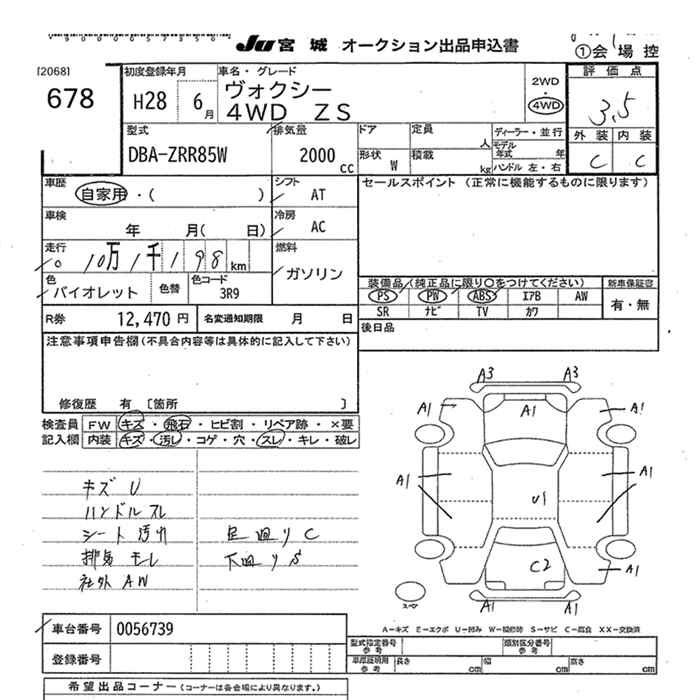 JU 宮城 オークション出品申込書
①会場控
[2068]
678
初度登録年月
H28 6月
車名・グレード
ヴォクシー
4WD ZS
2WD
・
4WD
評価点
3.5
外装 内装
C C
型式
DBA-ZRR85W
排気量
2000 cc
ドア
形状 W
定員 人
積載 kg
ディーラー・並行
モデル年式 年
ハンドル 左・右
車歴
自家用・( )
シフト
AT
セールスポイント (正常に機能するものに限ります)
車検
年 月( 日)
冷房
AC
走行
10万1千198km
燃料
ガソリン
色
バイオレット
色替
色コード
3R9
装備品(純正品に限り○をつけてください)
新車保証書
PS PW ABS エアB AW
有・無
SR ナビ TV カワ
R券 12,470円
名変通知期限 月 日
後日品
注意事項申告欄(不具合内容等は具体的に記入して下さい)
修復歴 有 [箇所 ]
検査員記入欄
FW キズ・飛石・ヒビ割・リペア跡・×要
内装 キズ・汚レ・コゲ・穴・スレ・キレ・破レ
キズ U
ハンドルスレ
シート 汚れ
排気 モレ
社外 AW
足廻り C
下廻り S
A3 A3
A1 A1 A1
A1 A1
U1
C2
A1 A1
A1 A1
スペア
A-キズ E-エクボ U-凹み W-補修跡 S-サビ C-腐食 XX-交換済
車台番号 0056739
登録番号
型式指定番号 参考
類別区分番号 参考
車庫証明用 参考
長さ cm
幅 cm
高さ cm
希望出品コーナー (コーナーは各会場により異なります。)